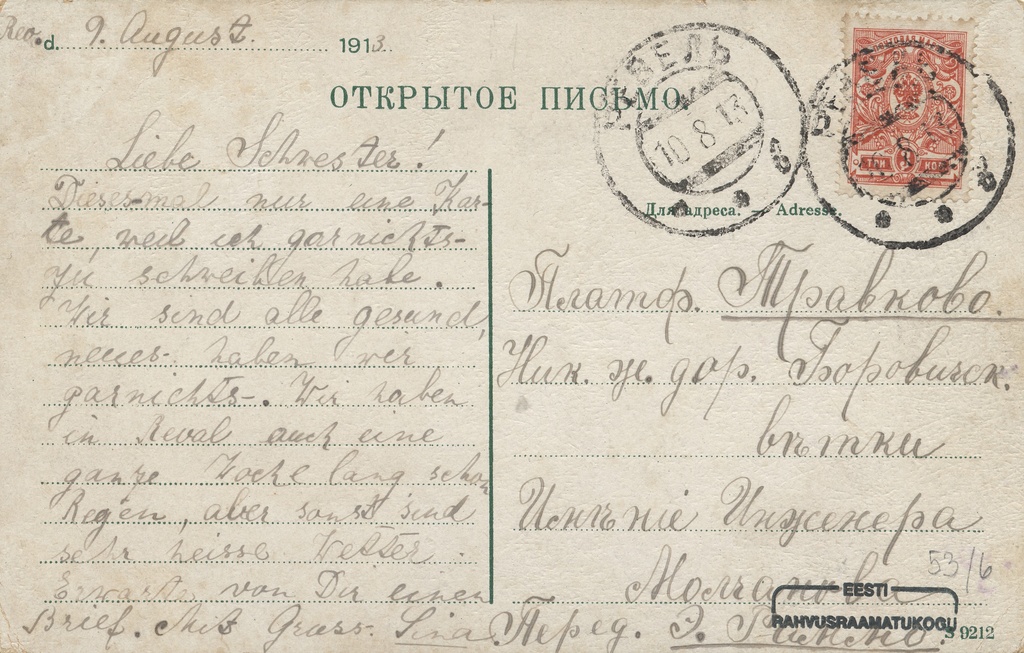 Rev. d. 9. August. 1913.
ОТКРЫТОЕ ПИСЬМО.
Liebe Schwester!
Diesesmal nur eine Kar-
te, weil ich garnichts
zu schreiben habe.
Wir sind alle gesund,
neues haben wir
garnichts. Wir haben
in Reval auch eine
ganze Woche lang schon
Regen, aber sonst sind
sehr heisse Wetter.
Erwarte von Dir einen
Brief. Mit Gruss. Lina.
РЕВЕЛЬ
10·8·13
ТРИ КОП
Для адреса. — Adresse.
Платф. Травково.
Ник. ж. дор. Боровичск.
вѣтки
Имѣніе Инженера
Молчанова
Перед. Э.
53/6
EESTI
RAHVUSRAAMATUKOGU
S 9212